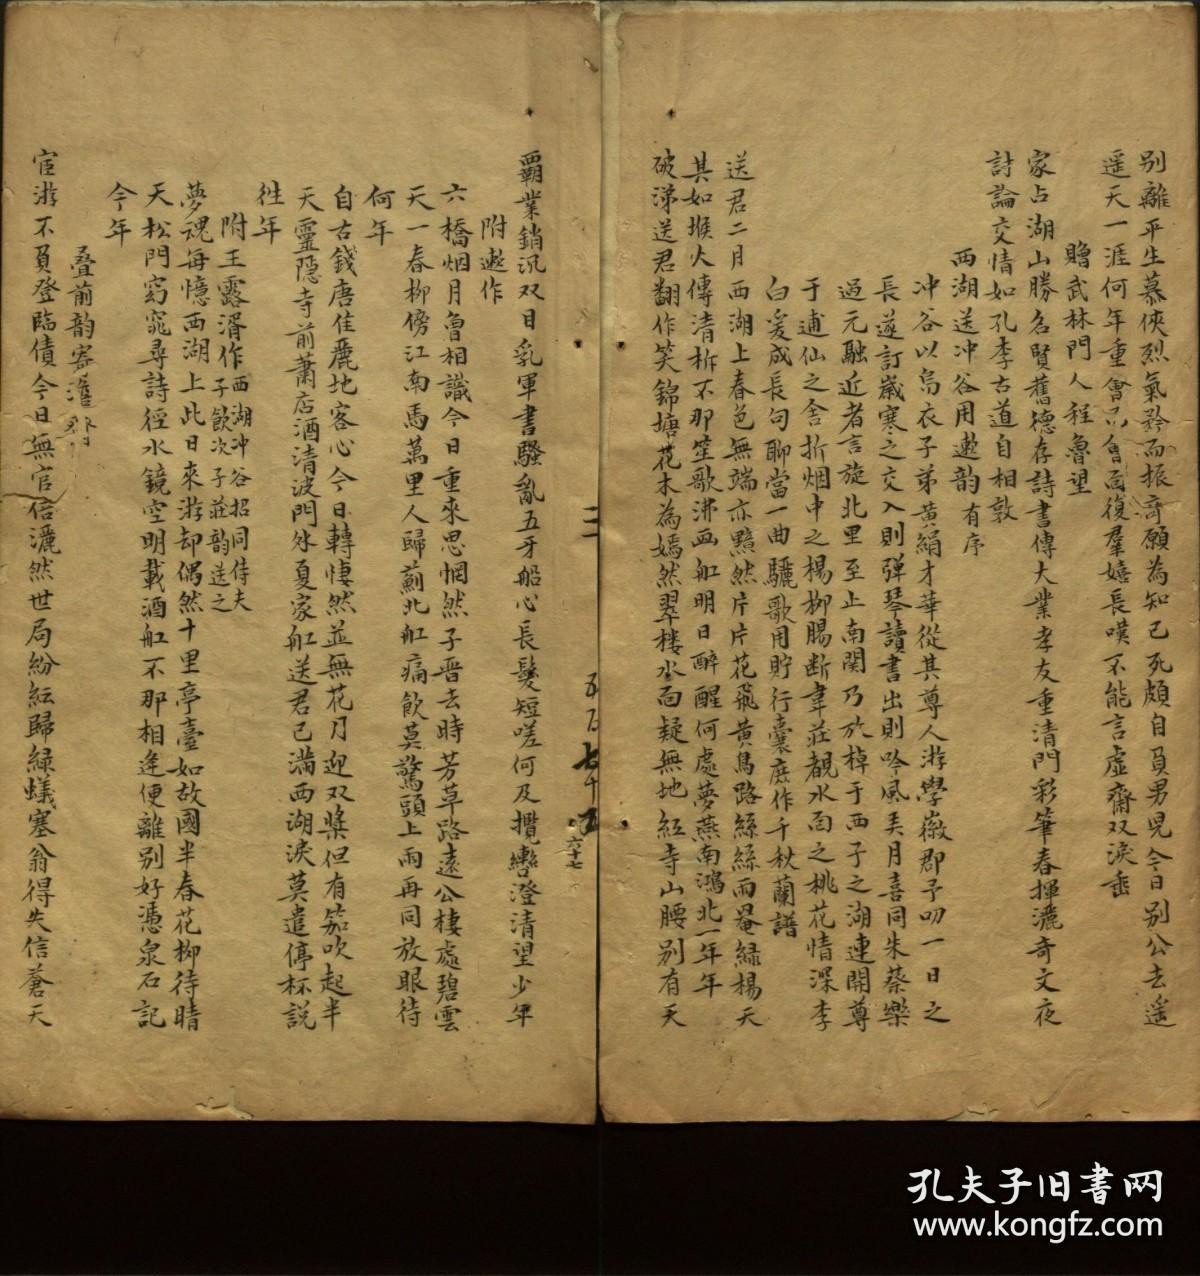 別離平生慕俠烈氣矜而振奇願為知己死頗自負男兒今日別公去遥
遥天一涯何年重會面復羣嬉長嘆不能言虛齋双淚垂
贈武林門人程魯望
家占湖山勝名賢舊德存詩書傳大業孝友重清門彩筆春揮灑奇文夜
討論交情如孔李古道自相敦
西湖送冲谷用遬韵有序
冲谷以烏衣子弟黃絹才華從其尊人游學徽郡予叨一日之
長遂訂歲寒之交入則彈琴讀書出則吟風弄月喜同朱蔡樂
過元融近者言旋北里至止南関乃於棹于西子之湖連開尊
于逋仙之舍折烟中之楊柳腸断韋莊覩水面之桃花情深李
白爰成長句聊當一曲驪歌用貯行囊庶作千秋蘭譜
送君二月西湖上春色無端亦黯然片片花飛黄鳥路絲絲雨罨緑楊天
其如堠火傳清柝不那笙歌沸画舡明日醉醒何處夢燕南鴻北一年年
破涕送君翻作笑錦塘花木為嫣然翠樓水面疑無地紅寺山腰别有天
霸業銷沉双目乳軍書騷亂五牙船心長髪短嗟何及攬轡澄清望少年
附遬作
六橋烟月魯相識今日重來思惘然子晋去時芳草路遠公棲處碧雲
天一春柳傍江南馬萬里人歸薊北舡痛飲莫驚頭上雨再同放眼待
何年
自古錢唐佳麗地客心今日轉悽然並無花月迎双槳但有笳吹起半
天靈隐寺前蕭店酒清波門外夏家舡送君已満西湖淚莫遣停杯説
徃年
附王露湑作西湖冲谷招同侍夫
子飲次子莊韵送之
夢魂每憶西湖上此日來游却偶然十里亭臺如故國半春花柳待晴
天松門窈窕尋詩徑水鏡空明載酒舡不那相逢便離别好憑泉石記
今年
叠前韵寄
宦游不負登臨債今日無官信灑然世局紛紜歸緑蟻塞翁得失信蒼天
三
五百七十五
六十七
孔夫子旧書网
www.kongfz.com